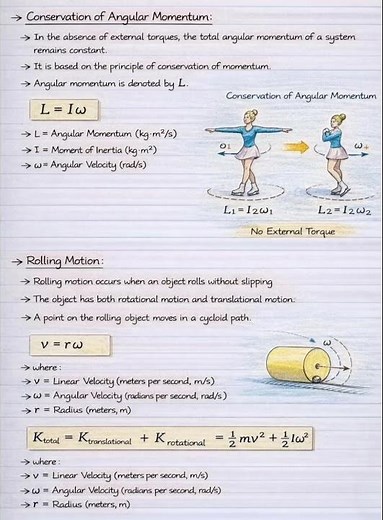 → Conservation of Angular Momentum:
→ In the absence of external torques, the total angular momentum of a system
remains constant.
→ It is based on the principle of conservation of momentum.
→ Angular momentum is denoted by L.
L = Iω
→ L = Angular Momentum (kg·m²/s)
→ I = Moment of Inertia (kg·m²)
→ ω = Angular Velocity (rad/s)
Conservation of Angular Momentum
L₁ = I₂ω₁
L₂ = I₂ω₂
No External Torque
→ Rolling Motion:
→ Rolling motion occurs when an object rolls without slipping
→ The object has both rotational motion and translational motion.
→ A point on the rolling object moves in a cycloid path.
v = rω
ω
→ where :
→ v = Linear Velocity (meters per second, m/s)
→ ω = Angular Velocity (radians per second, rad/s)
→ r = Radius (meters, m)
K total = K translational + K rotational = ½ mv² + ½ Iω²
→ where :
→ v = Linear Velocity (meters per second, m/s)
→ ω = Angular Velocity (radians per second, rad/s)
→ r = Radius (meters, m)